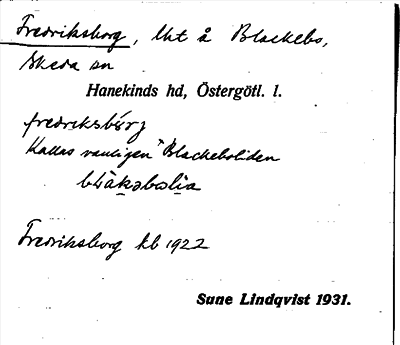 Fredriksborg, lht å Blackebo,
Skeda sn
Hanekinds hd, Östergötl. l.
fredrəksbórj
Kallas vanligen "Blackeboliden
Fredriksborg kb 1922
Sune Lindqvist 1931.